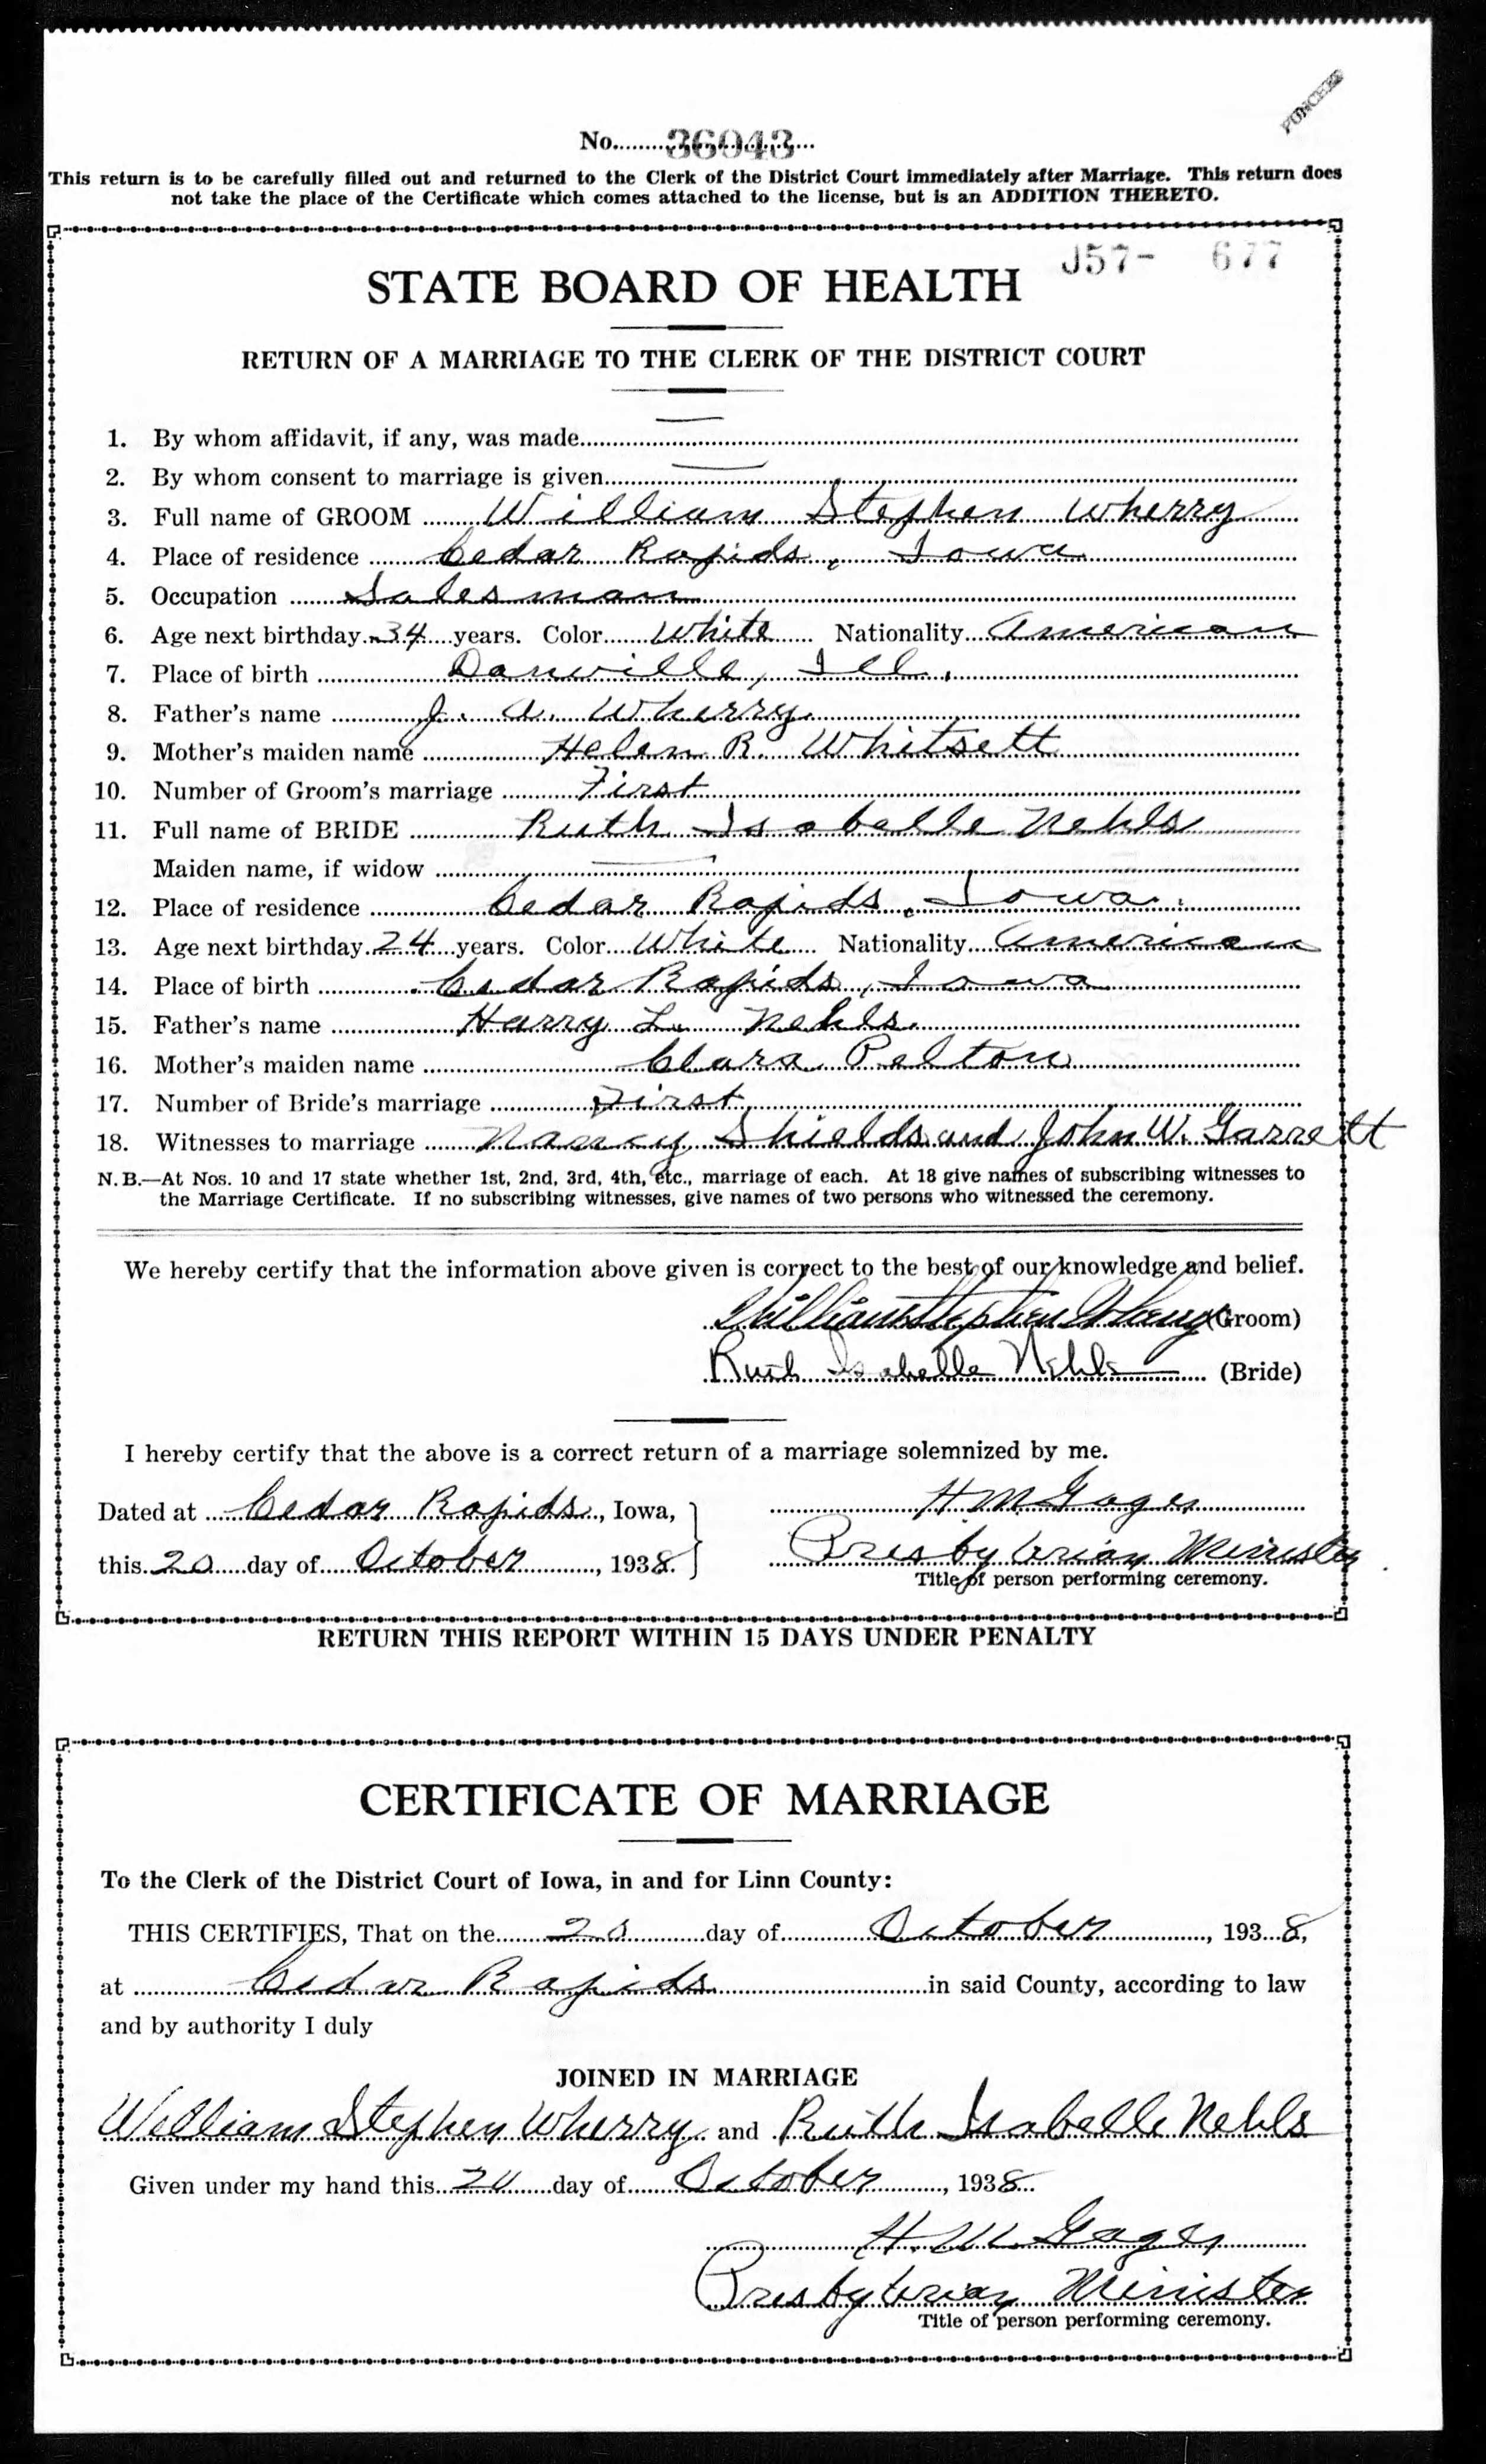 PUNCHED
No. 36043
This return is to be carefully filled out and returned to the Clerk of the District Court immediately after Marriage. This return does
not take the place of the Certificate which comes attached to the license, but is an ADDITION THERETO.
J57- 677
STATE BOARD OF HEALTH
RETURN OF A MARRIAGE TO THE CLERK OF THE DISTRICT COURT
1. By whom affidavit, if any, was made —
2. By whom consent to marriage is given —
3. Full name of GROOM William Stephen Wherry
4. Place of residence Cedar Rapids, Iowa
5. Occupation Salesman
6. Age next birthday 34 years. Color White Nationality American
7. Place of birth Danville, Ill.
8. Father's name J. A. Wherry.
9. Mother's maiden name Helen R. Whitsett
10. Number of Groom's marriage First
11. Full name of BRIDE Ruth Isabelle Nehls
Maiden name, if widow —
12. Place of residence Cedar Rapids, Iowa.
13. Age next birthday 24 years. Color White Nationality American
14. Place of birth Cedar Rapids, Iowa
15. Father's name Harry L. Nehls.
16. Mother's maiden name Clara Pelton
17. Number of Bride's marriage First
18. Witnesses to marriage Nancy Shields and John W. Garrett
N. B.—At Nos. 10 and 17 state whether 1st, 2nd, 3rd, 4th, etc., marriage of each. At 18 give names of subscribing witnesses to
the Marriage Certificate. If no subscribing witnesses, give names of two persons who witnessed the ceremony.
We hereby certify that the information above given is correct to the best of our knowledge and belief.
William Stephen Wherry (Groom)
Ruth Isabelle Nehls (Bride)
I hereby certify that the above is a correct return of a marriage solemnized by me.
H. M. Gage
Dated at Cedar Rapids, Iowa,
this 20 day of October, 1938.
Presbyterian Minister
Title of person performing ceremony.
RETURN THIS REPORT WITHIN 15 DAYS UNDER PENALTY
CERTIFICATE OF MARRIAGE
To the Clerk of the District Court of Iowa, in and for Linn County:
THIS CERTIFIES, That on the 20 day of October, 1938,
at Cedar Rapids in said County, according to law
and by authority I duly
JOINED IN MARRIAGE
William Stephen Wherry and Ruth Isabelle Nehls
Given under my hand this 20 day of October, 1938
H. M. Gage
Presbyterian Minister
Title of person performing ceremony.